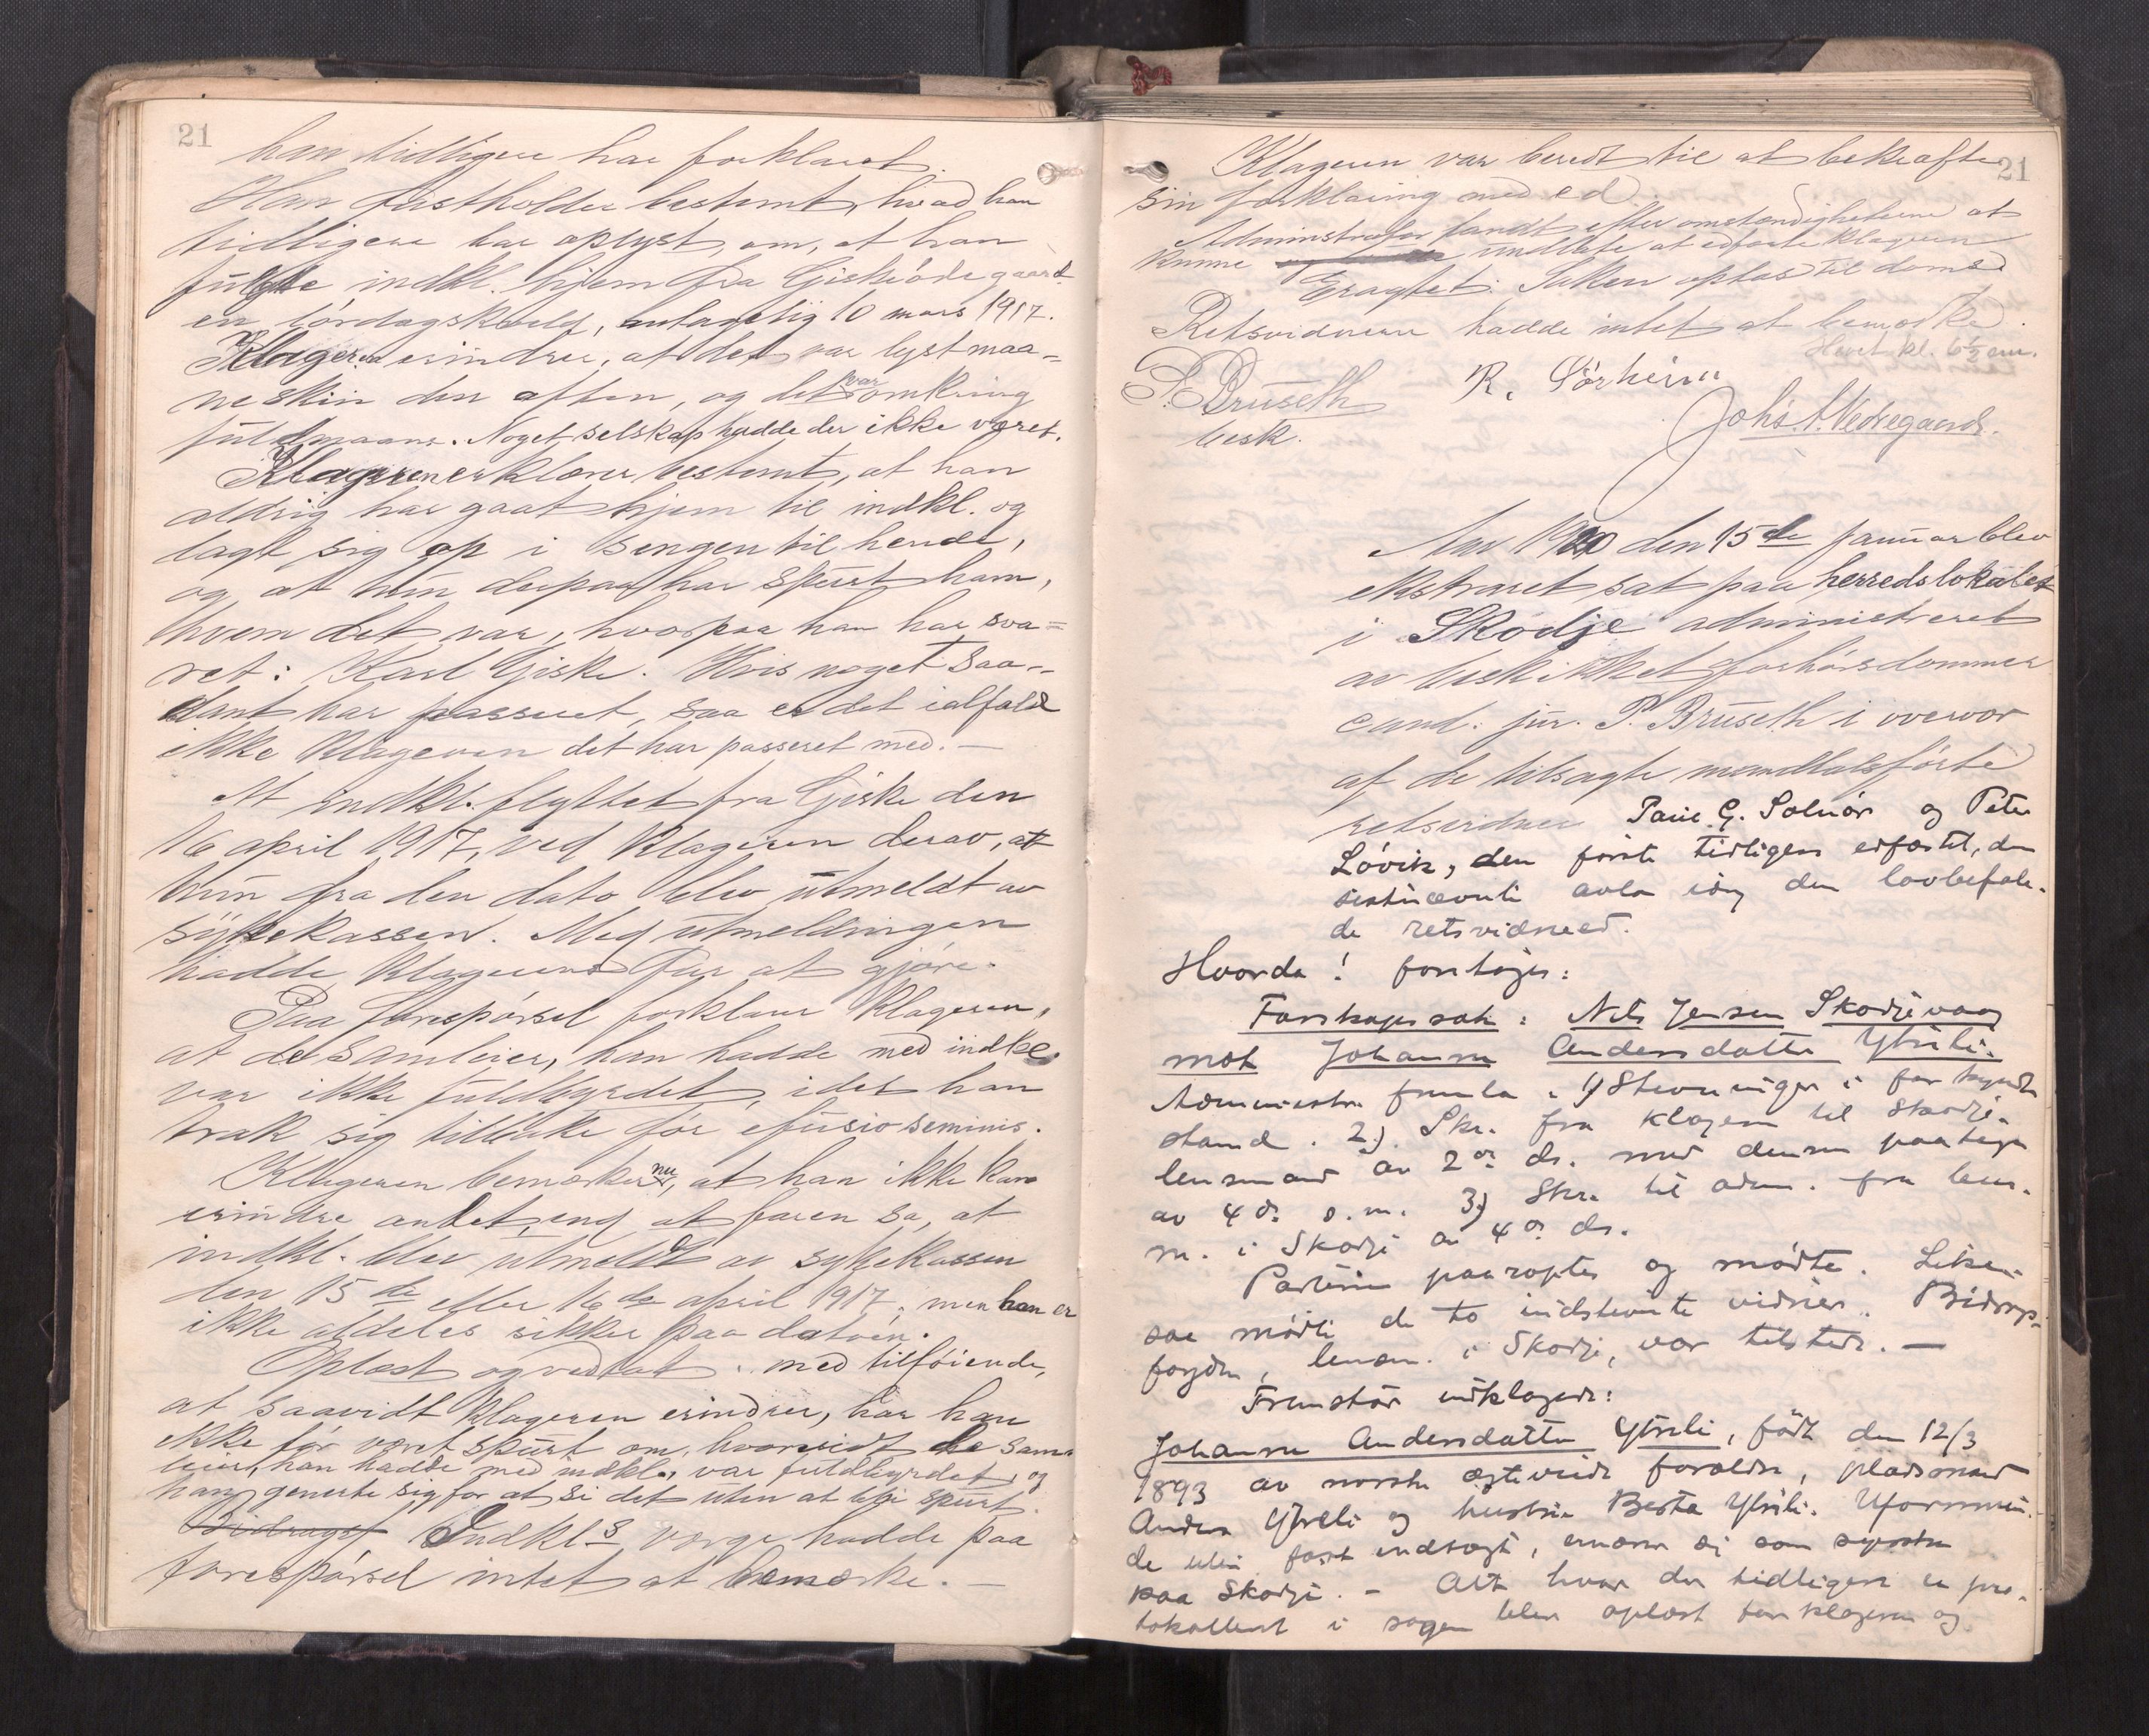 21
han tidligere har forklaret.
Han fastholder bestemt, hvad han
tidligere har oplyst, om, at han
fulgte indkl. hjem fra Giskeödegaard
en lördagskveld, antagelig 10 mars 1917.
Klageren erindrer, at det var lyst maa-
neskin den aften, og det var omkring
fuldmaane. Noget selskap hadde der ikke været.
Klageren erklærer bestemt, at han
aldrig har gaat hjem til indkl. og
lagt sig op i sengen til hende,
og at hun derpaa har spurt ham,
hvem det var, hvorpaa han har sva=
ret: Karl Giske. Hvis noget saa-
dant har passeret, saa er det ialfald
ikke klageren det har passeret med. —
At indkl. flyttet fra Giske den
16 april 1917, ved klageren derav, at
hun fra den dato blev utmeldt av
sykekassen. Med utmeldingen
hadde klagerens far at gjöre.
Paa forespörsel forklarer klageren,
at de samleier, han hadde med indkl.
var ikke fuldbyrdet, idet han
trak sig tilbake för efusio seminis.
Klageren bemerker nu, at han ikke kan
erindre andet, end at faren sa, at
indkl. blev utmeldt av sykekassen
den 15de eller 16de april 1917, men han er
ikke aldeles sikker paa datoen.
Oplæst og vedtat. med tilföiende,
at saavidt klageren erindrer, har han
ikke för været spurt om, hvorvidt de sam-
leier, han hadde med indkl., var fuldbyrdet, og
han generte sig for at si det uten at bli spurt.
Bidragsf Indkls verge hadde paa
forespörsel intet at bemerke. —
21
Klageren var beredt til at bekræfte
sin forklaring med ed.
Administrator fandt efter omstændigheterne at
kunne undlate at edfæste klageren
Eragtet: Saken optas til doms.
Retsvidnene hadde intet at bemerke.
Hevet kl. 6½ em.
P. Bruseth R. Sörheim
besk. Johs. A. Vedregaard.
Aar 1920 den 15de januar blev
ekstraret sat paa herredslokalet
i Skodje administreret
av beskikket forhörsdommer
cand. jur. P. Bruseth i overvær
af de tilsagte mandtalsförte
retsvidner Paul G. Solnör og Peter
Lövik, den förste tidligere edfæstet, den
sistnævnte avla idag den lovbefale-
de retsvidneed.
Hvorda! foretoges:
Farskapssak: Nils Jensen Skodjevaag
mot Johanne Andersdatter Ytreli.
Administr. fremla: 1) Stevninger i forkyndt
stand. 2) Skr. fra klageren til Skodje
lensmand av 2de ds. med dennes paategn.
av 4de s.m. 3) Skr. til adm. fra lens-
m. i Skodje av 4de ds.
Parterne paaroptes og mödte. Like-
saa mödte de to indstevnte vidner. Bidrags-
fogden, lensm. i Skodje, var tilstede. —
Fremstod indklagede:
Johanne Andersdatter Ytreli, födt den 12/3
1893 av norske egteviede forældre, pladsmand
Anders Ytreli og hustru Berta Ytreli. Uformuen-
de uten fast indtægt, ernærer sig som syerske
paa Skodje. – Alt hvad der tidligere er pro-
tokolleret i sagen blev oplæst for klageren og